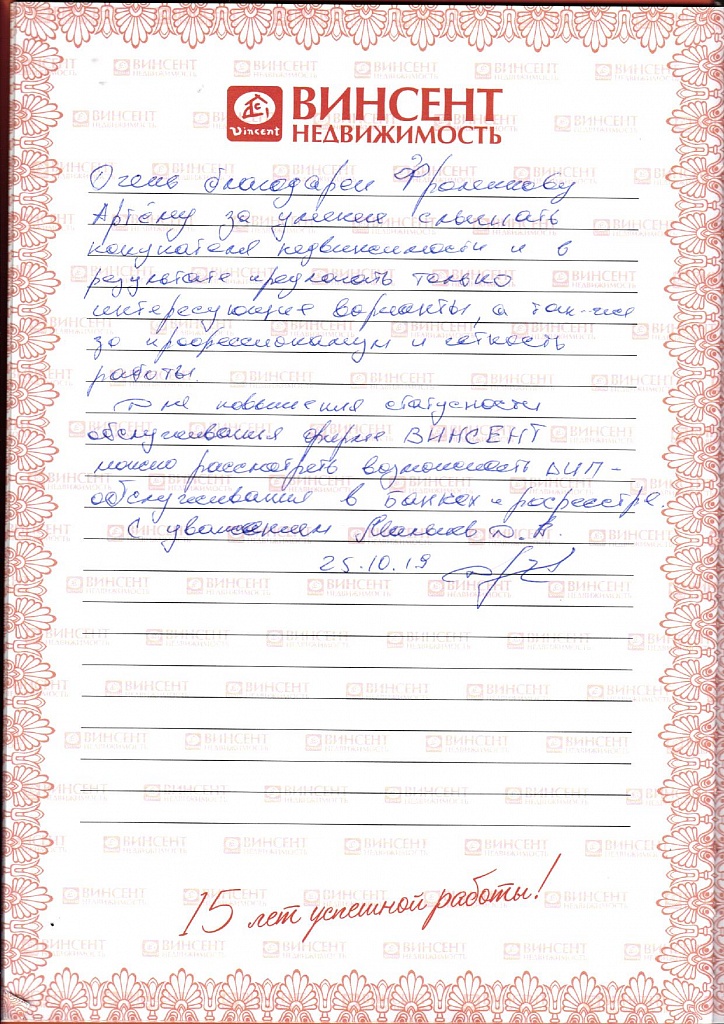 Vincent
ВИНСЕНТ
НЕДВИЖИМОСТЬ
Очень благодарен Фроленкову
Артёму за умение слышать
покупателя недвижимости и в
результате предлагать только
интересующие варианты, а так-же
за профессионализм и четкость
работы.
Для повышения статусности
обслуживания фирме ВИНСЕНТ
можно рассмотреть возможность ВИП-
обслуживания в Банках и росреестре.
С уважением
25.10.19
15 лет успешной работы!